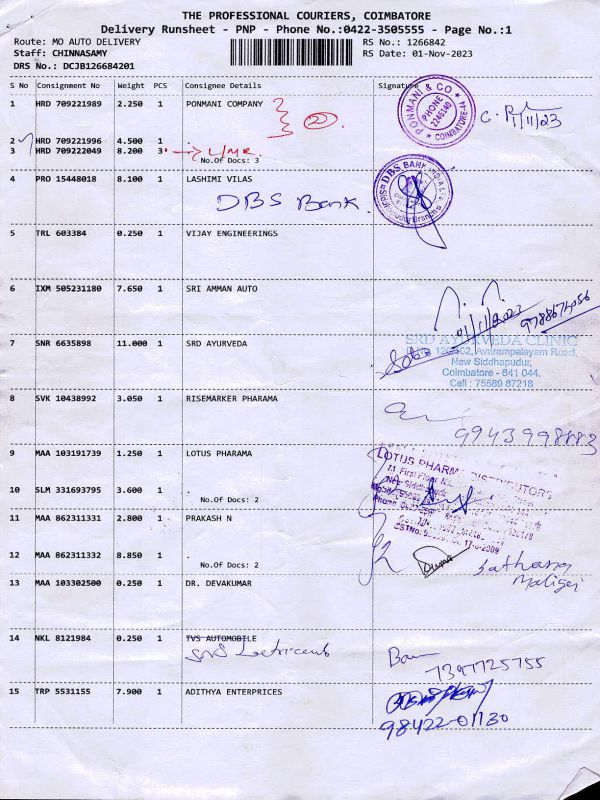 THE PROFESSIONAL COURIERS, COIMBATORE
Delivery Runsheet - PNP - Phone No.:0422-3505555 - Page No.:1
Route: MO AUTO DELIVERY RS No.: 1266842
Staff: CHINNASAMY RS Date: 01-Nov-2023
DRS No.: DCJB126684201
S No Consignment No Weight PCS Consignee Details Signature
1 HRD 709221989 2.250 1 PONMANI COMPANY
2
PONMANI & CO
PHONE
2246140
COIMBATORE-44
1/11/23
2 HRD 709221996 4.500 1
3 HRD 709222049 8.200 3
No.Of Docs: 3
4 PRO 15448018 8.100 1 LASHIMI VILAS
DBS Bank.
DBS BANK INDIA LTD
5 TRL 603384 0.250 1 VIJAY ENGINEERINGS
6 IXM 505231180 7.650 1 SRI AMMAN AUTO
01/11/2023
7 SNR 6635898 11.000 1 SRD AYURVEDA
SRD AYURVEDA CLINIC
Avarampalayam Road,
New Siddhapudur,
Coimbatore - 641 044,
Call : 75589 87218
8 SVK 10438992 3.050 1 RISEMARKER PHARAMA
9943998883
9 MAA 103191739 1.250 1 LOTUS PHARAMA
LOTUS PHARMA DISTRIBUTORS
First Floor
10 SLM 331693795 3.600 1
No.Of Docs: 2
11 MAA 862311331 2.800 1 PRAKASH N
12 MAA 862311332 8.850 1
No.Of Docs: 2
13 MAA 103302500 0.250 1 DR. DEVAKUMAR
14 NKL 8121984 0.250 1 TVS AUTOMOBILE
7397725755
15 TRP 5531155 7.900 1 ADITHYA ENTERPRICES
98422-01130